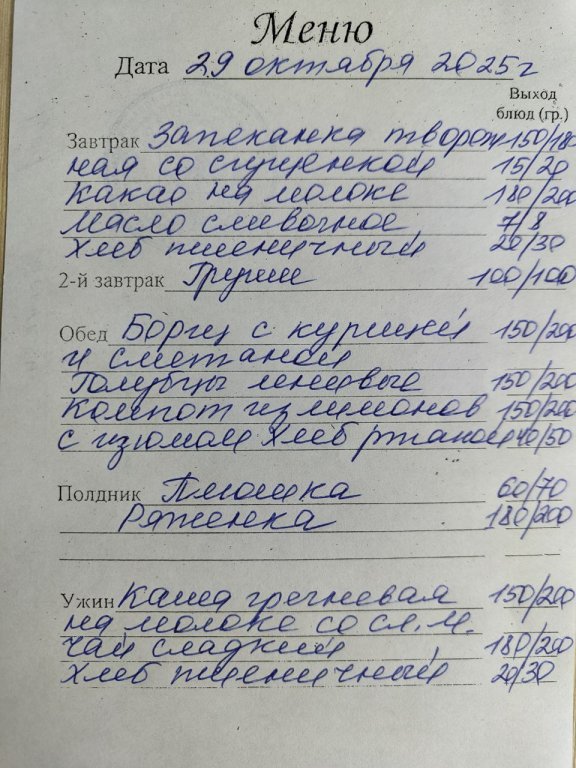 Меню
Дата 29 октября 2025г
Выход
блюд (гр.)
Завтрак Запеканка творож 150/180
ная со сгущенкой 15/20
Какао на молоке 180/200
Масло сливочное 7/8
Хлеб пшеничный 20/30
2-й завтрак Груши 100/100
Обед Борщ с курицей 150/200
и сметаной
Голубцы ленивые 150/200
Компот из лимонов 150/200
с изюмом Хлеб ржаной 40/50
Полдник Плюшка 60/70
Ряженка 180/200
Ужин Каша гречневая 150/200
на молоке со сл.м.
Чай сладкий 180/200
Хлеб пшеничный 20/30